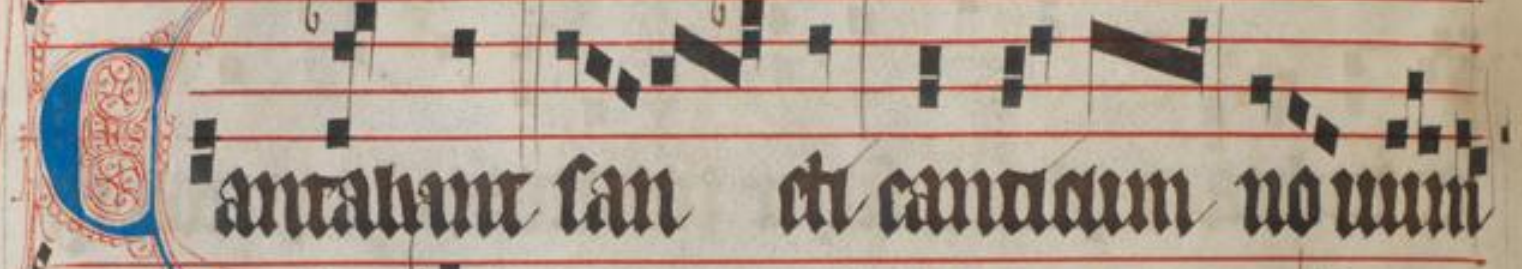 Cantabant san cti canticum no uum